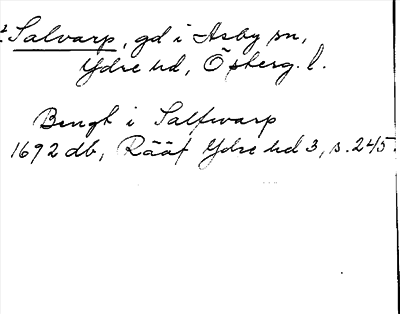 Salvarp, gd i Asby sn,
Ydre hd, Östberg. l.
Bengt i Salfwarp
1692 db, Rääf Ydre hd 3, s. 245.